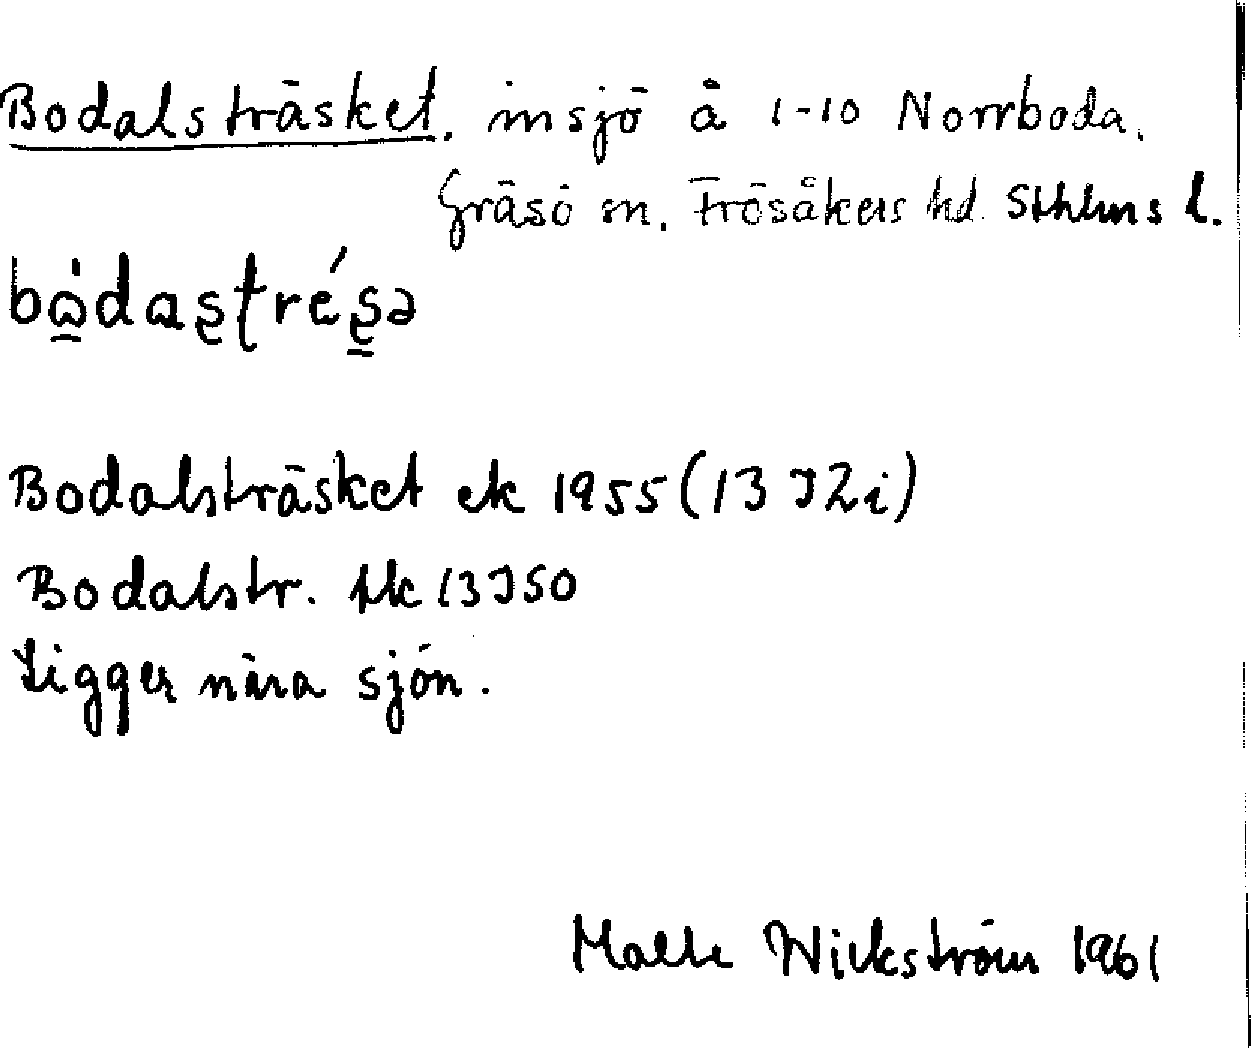 Bodalsträsket. insjö å 1-10 Norrboda.
Gräsö sn. Frösåkers hd. Sthlms l.
bὼ̠daʂʈré̠ʂə
Bodalsträsket ek 1955 (13 J2i)
Bodalstr. tk 13 J SO
Ligger nära sjön.
Malle Wickström 1961